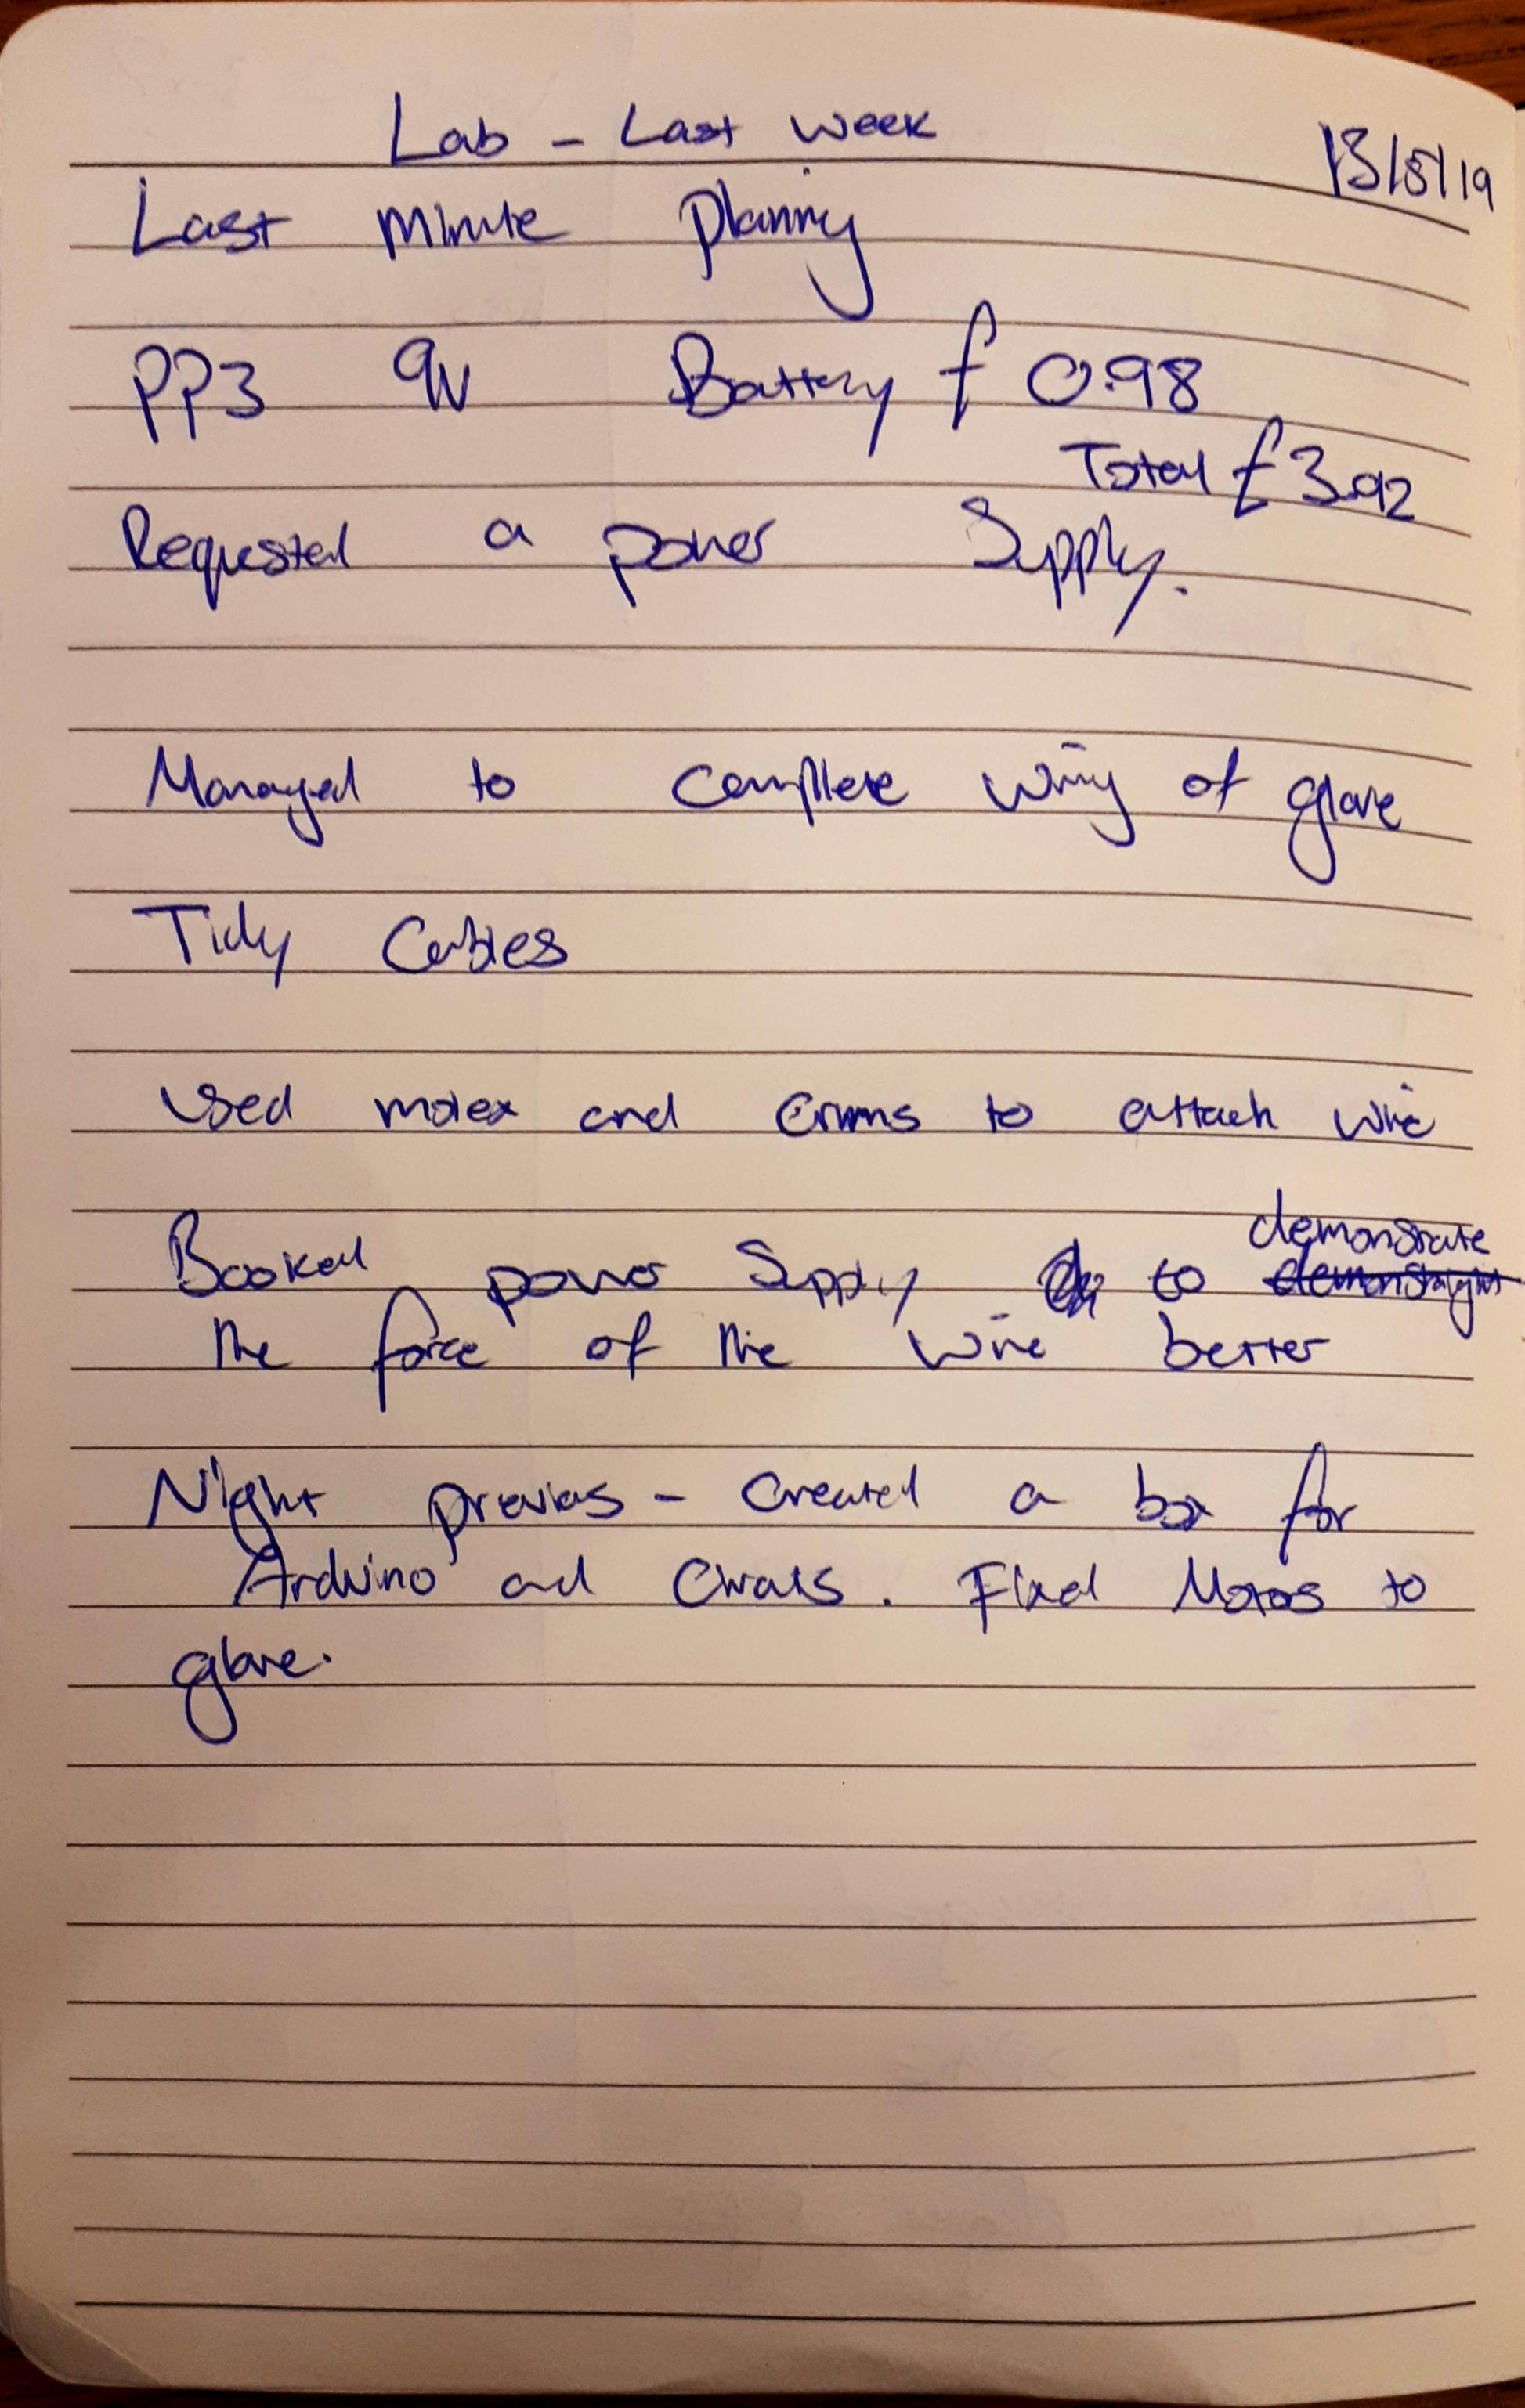 Lab - Last week
13/5/19
Last minute planning
PP3 9v Battery £0.98
Total £3.92
Requested a power supply.
Managed to complete wiring of glove
Tidy Cables
Used molex and crimps to attach wire
demonstrate
Booked power supply to demonstraight
the force of the wire better
Night previous - Created a box for
Arduino and Circuits. Fixed Motors to
glove.